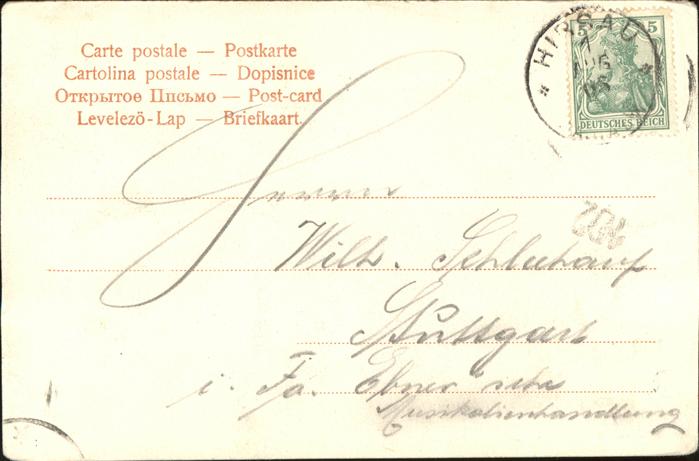 Carte postale — Postkarte
Cartolina postale — Dopisnice
Открытое Письмо — Post-card
Levelező-Lap — Briefkaart.
5 5
DEUTSCHES REICH
HIRSAU
1
AUG
Herrn
Wilh.
Stuttgart
i. Fa. Ebner'sche
Musikalienhandlung